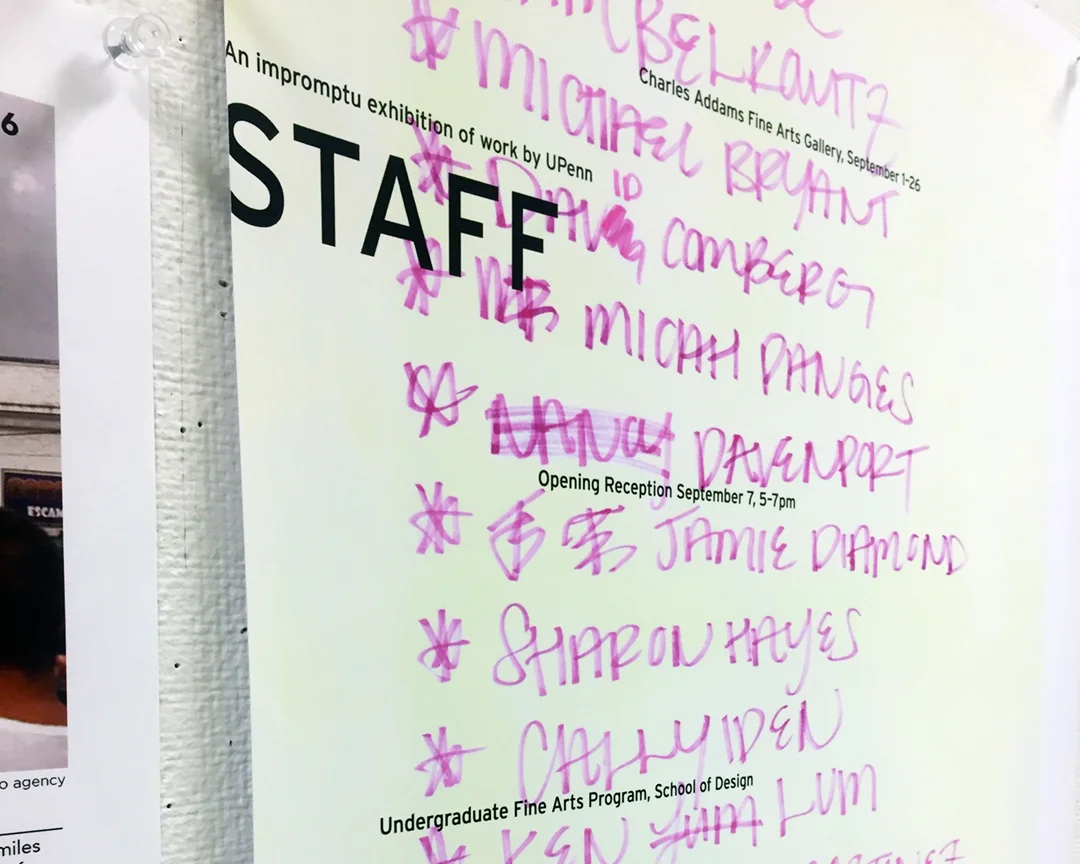 6
ESCAM
o agency
miles
BELKOWITZ
* MICHAEL BRYANT
Charles Addams Fine Arts Gallery, September 1-26
An impromptu exhibition of work by UPenn
STAFF
* DAVID COMBERG
* MICAH DANGES
* NANCY DAVENPORT
Opening Reception September 7, 5-7pm
* JAMIE DIAMOND
* SHARON HAYES
* CALLY IDEN
Undergraduate Fine Arts Program, School of Design
* KEN YUM LUM